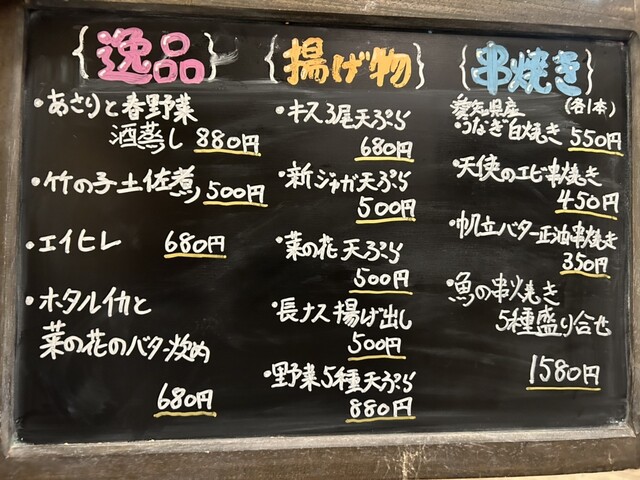 {逸品}
・あさりと春野菜
酒蒸し 880円
・竹の子土佐煮 500円
・エイヒレ 680円
・ホタルイカと
菜の花のバター炒め
680円
{揚げ物}
・キス3尾天ぷら
680円
・新ジャガ天ぷら
500円
・菜の花天ぷら
500円
・長ナス揚げ出し
500円
・野菜5種天ぷら
880円
{串焼き}
愛知県産 (各1本)
・うなぎ白焼き 550円
・天使のエビ串焼き
450円
・帆立バター正油串焼き
350円
・魚の串焼き
5種盛り合せ
1580円